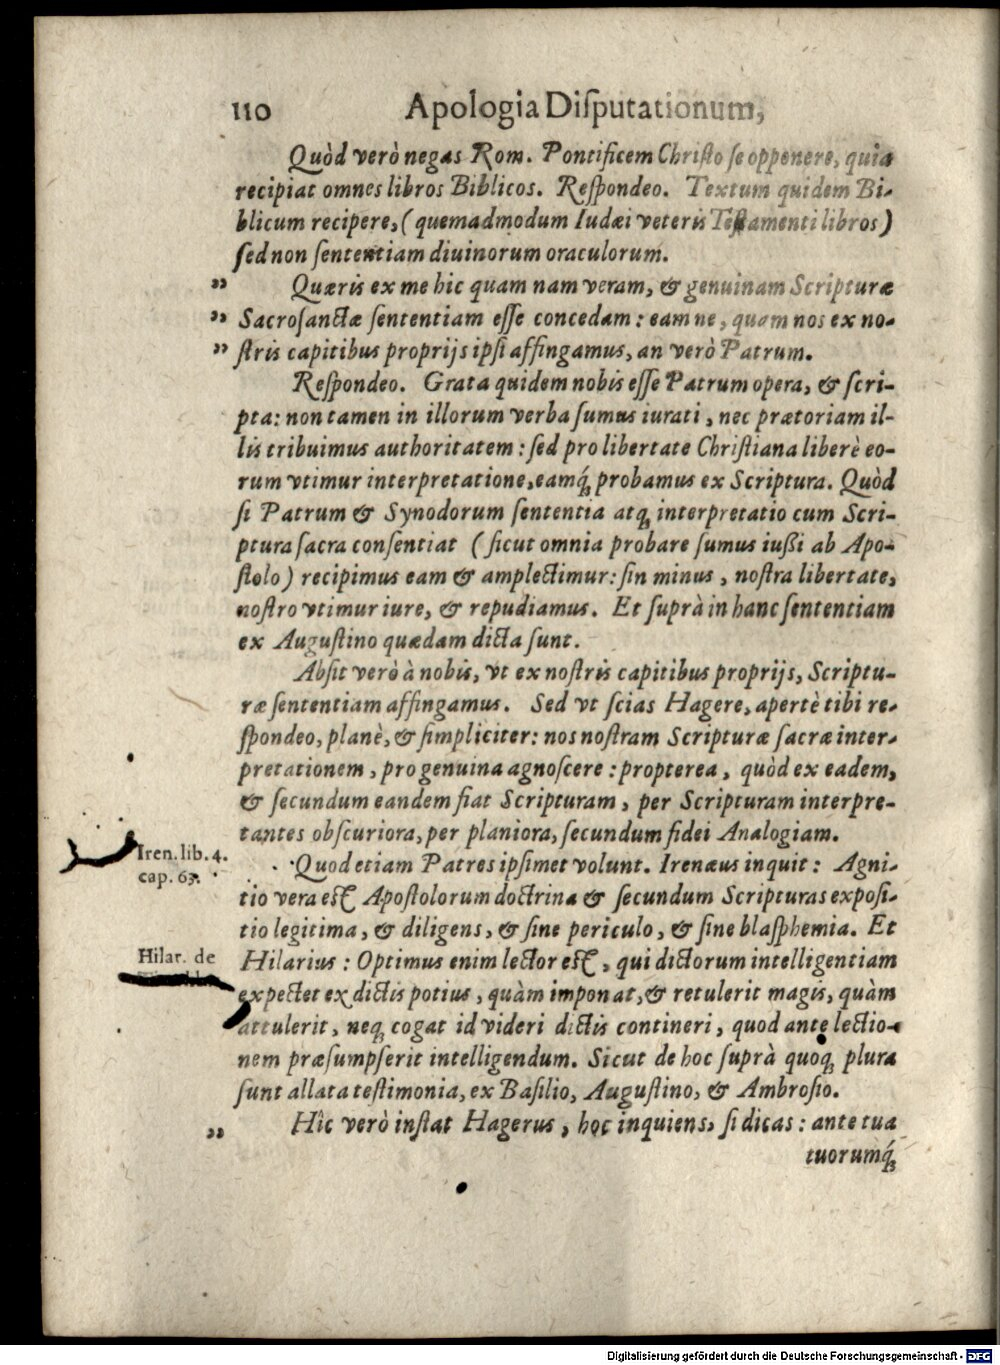 110 Apologia Diſputationum,
Quòd verò negas Rom. Pontificem Chriſto ſe opponere, quia
recipiat omnes libros Biblicos. Reſpondeo. Textum quidem Bi-
blicum recipere, (quemadmodum Iudæi veteris Teſtamenti libros)
ſed non ſententiam diuinorum oraculorum.
„ Quæris ex me hic quam nam veram, & genuinam Scripturæ
„ Sacroſanctæ ſententiam eſſe concedam: eam ne, quam nos ex no-
„ ſtris capitibus proprijs ipſi affingamus, an verò Patrum.
Reſpondeo. Grata quidem nobis eſſe Patrum opera, & ſcri-
pta: non tamen in illorum verba ſumus iurati, nec prætoriam il-
lis tribuimus authoritatem: ſed pro libertate Chriſtiana liberè eo-
rum vtimur interpretatione, eamq́; probamus ex Scriptura. Quòd
ſi Patrum & Synodorum ſententia atq; interpretatio cum Scri-
ptura ſacra conſentiat (ſicut omnia probare ſumus iußi ab Apo-
ſtolo) recipimus eam & amplectimur: ſin minus, noſtra libertate,
noſtro vtimur iure, & repudiamus. Et ſuprà in hanc ſententiam
ex Auguſtino quædam dicta ſunt.
Abſit verò à nobis, vt ex noſtris capitibus proprijs, Scriptu-
ræ ſententiam affingamus. Sed vt ſcias Hagere, apertè tibi re-
ſpondeo, planè, & ſimpliciter: nos noſtram Scripturæ ſacræ inter-
pretationem, pro genuina agnoſcere: propterea, quòd ex eadem,
& ſecundum eandem fiat Scripturam, per Scripturam interpre-
tantes obſcuriora, per planiora, ſecundum fidei Analogiam.
Iren. lib. 4.
cap. 63.
Quod etiam Patres ipſimet volunt. Irenæus inquit: Agni-
tio vera eſt Apoſtolorum doctrina & ſecundum Scripturas expoſi-
tio legitima, & diligens, & ſine periculo, & ſine blaſphemia. Et
Hilar. de
Hilarius: Optimus enim lector eſt, qui dictorum intelligentiam
expectet ex dictis potius, quàm imponat, & retulerit magis, quàm
attulerit, neq; cogat id videri dictis contineri, quod ante lectio-
nem præſumpſerit intelligendum. Sicut de hoc ſuprà quoq; plura
ſunt allata teſtimonia, ex Baſilio, Auguſtino, & Ambroſio.
„ Hîc verò inſtat Hagerus, hoc inquiens, ſi dicas: ante tua
tuorumq́;
Digitalisierung gefördert durch die Deutsche Forschungsgemeinschaft - DFG